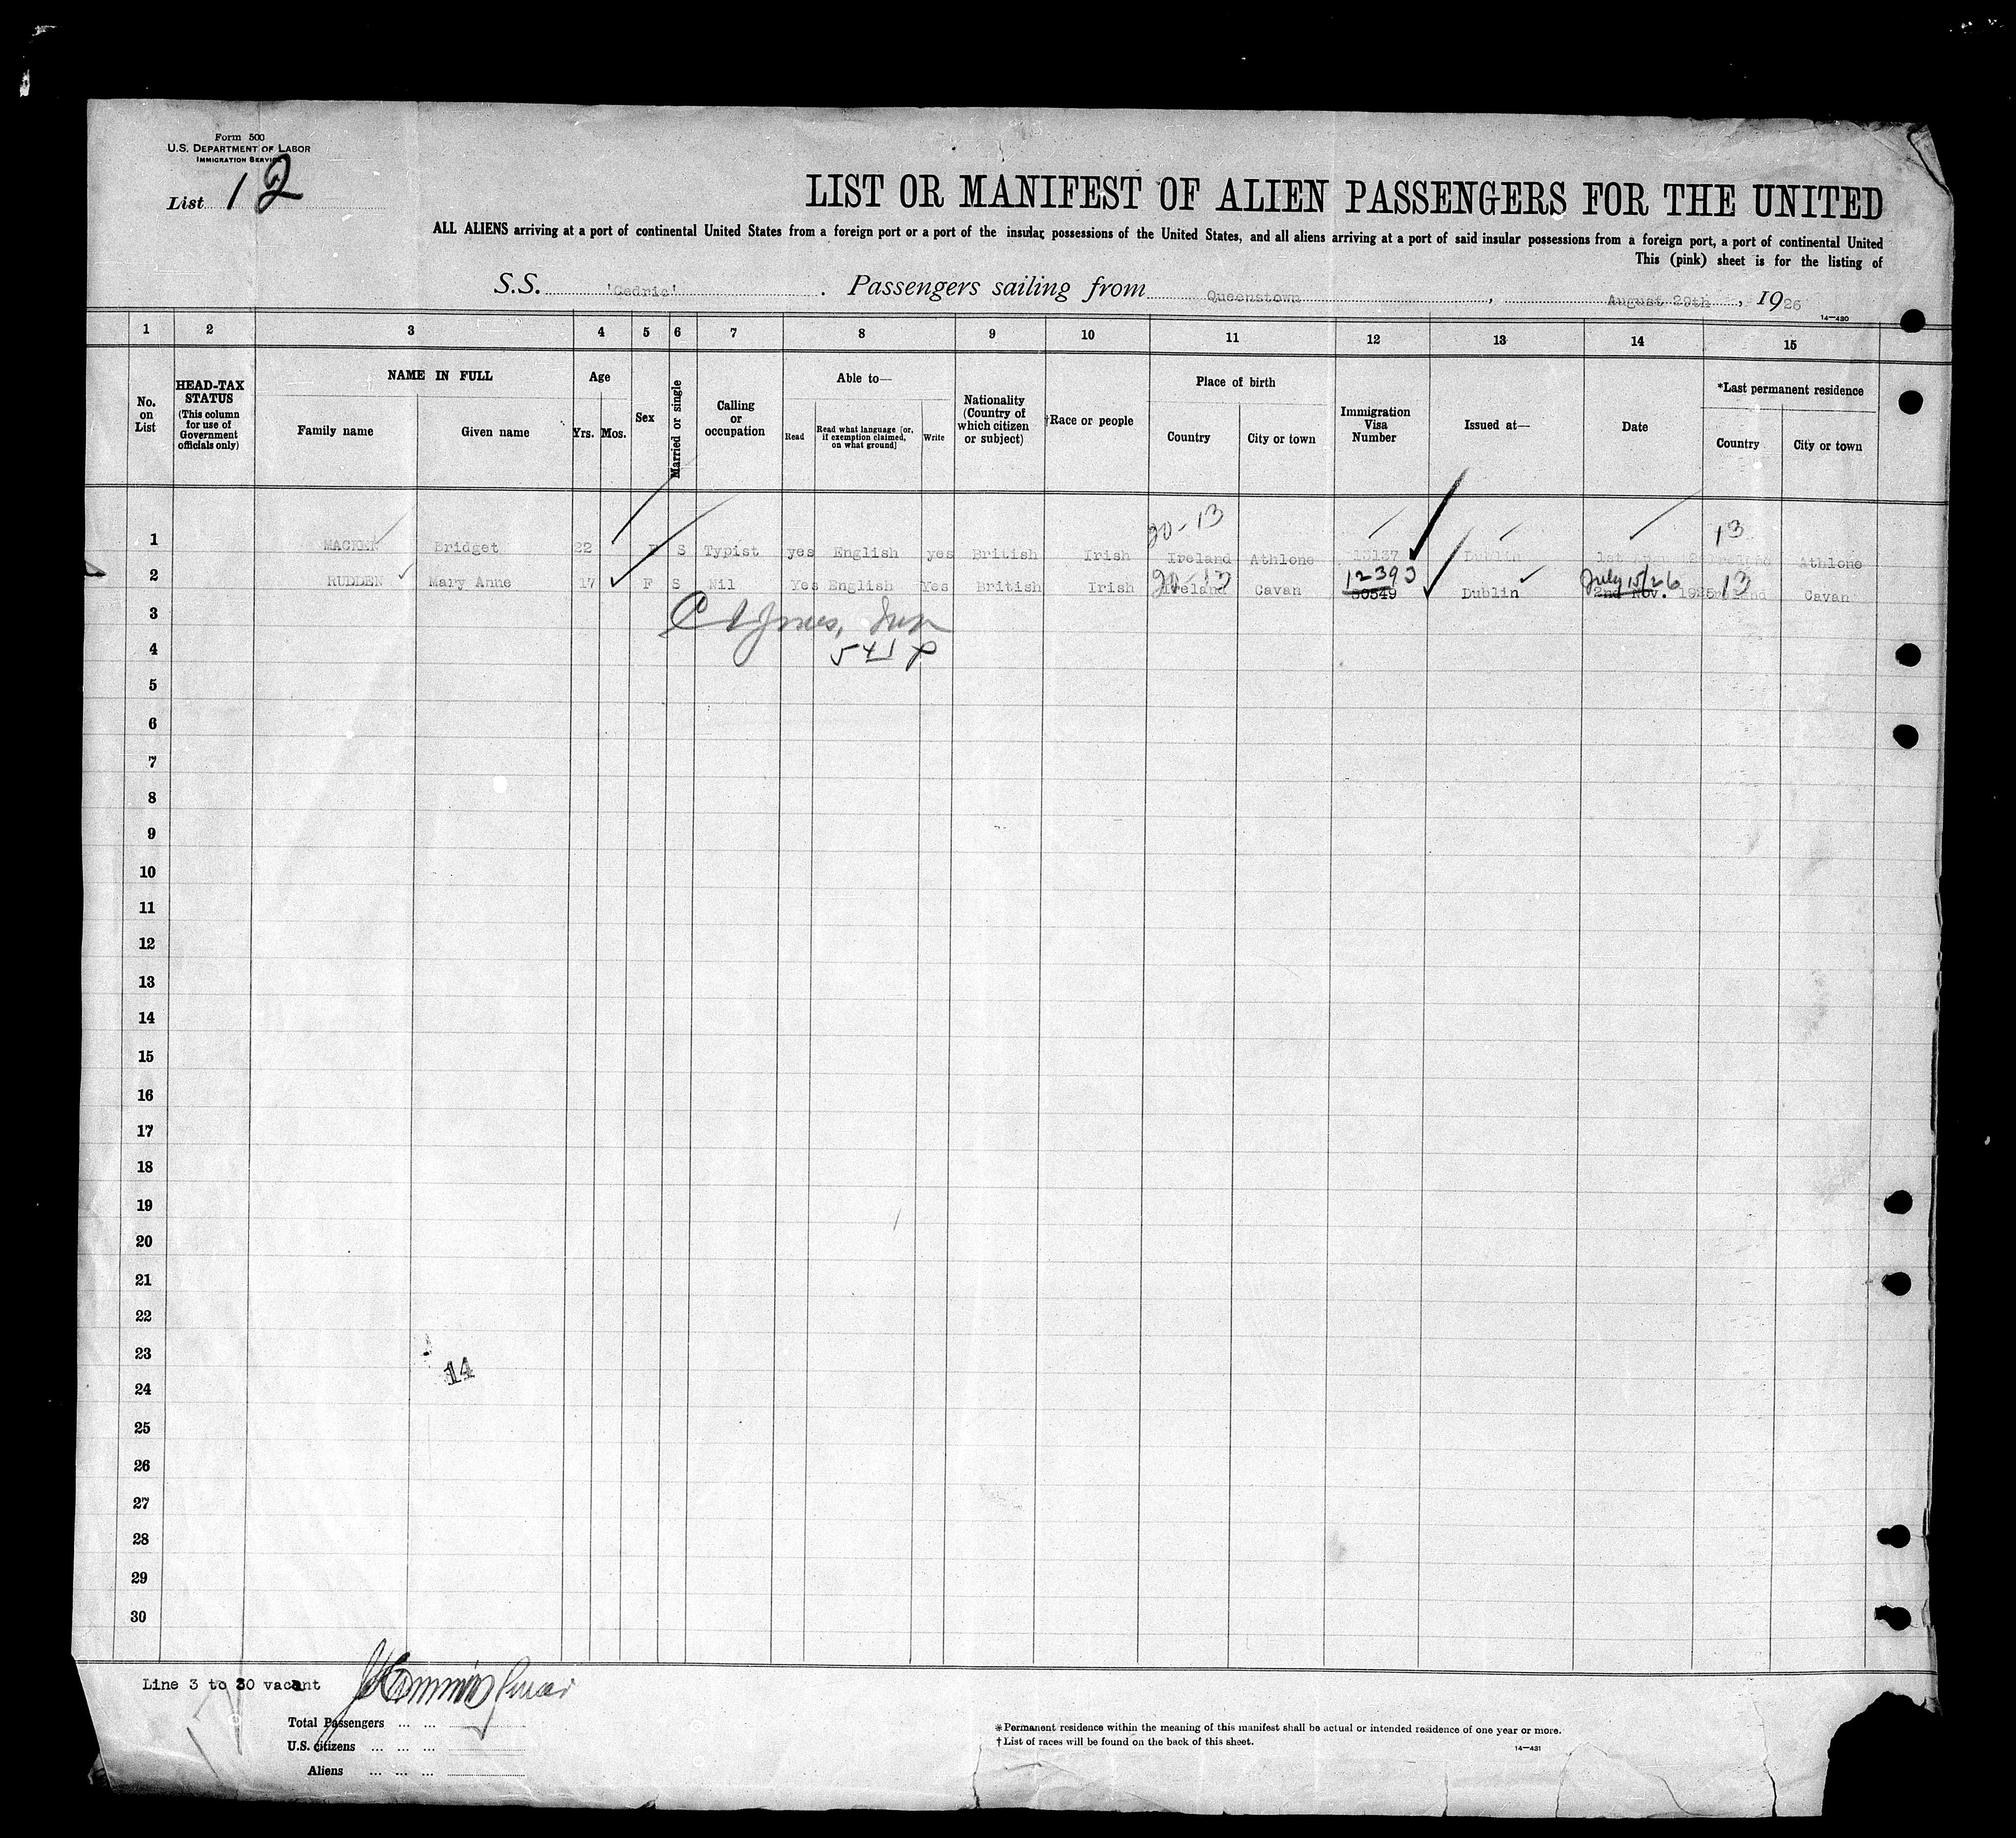 Form 500
U.S. DEPARTMENT OF LABOR
IMMIGRATION SERVICE
List 12
LIST OR MANIFEST OF ALIEN PASSENGERS FOR THE UNITED
ALL ALIENS arriving at a port of continental United States from a foreign port or a port of the insular possessions of the United States, and all aliens arriving at a port of said insular possessions from a foreign port, a port of continental United
This (pink) sheet is for the listing of
S.S. 'Cedric'. Passengers sailing from Queenstown, August 29th, 1926
14—430
1 2 3 4 5 6 7 8 9 10 11 12 13 14 15
No. on List
HEAD-TAX STATUS (This column for use of Government officials only)
NAME IN FULL
Family name
Given name
Age
Yrs. Mos.
Sex
Married or single
Calling or occupation
Able to—
Read
Read what language [or, if exemption claimed, on what ground]
Write
Nationality (Country of which citizen or subject)
†Race or people
Place of birth
Country
City or town
Immigration Visa Number
Issued at—
Date
*Last permanent residence
Country
City or town
20-13 13
1 MACKEN Bridget 22 F S Typist yes English yes British Irish Ireland Athlone Dublin Athlone
12393 July 15/26
2 RUDDEN Mary Anne 17 F S Nil Yes English Yes British Irish Ireland Cavan 30549 Dublin 2nd Nov. 1925 13 Cavan
3
4
5
6
7
8
9
10
11
12
13
14
15
16
17
18
19
20
21
22
23
14
24
25
26
27
28
29
30
Line 3 to 30 vacant
Total Passengers ... ...
U.S. citizens ... ... ...
Aliens ... ... ...
*Permanent residence within the meaning of this manifest shall be actual or intended residence of one year or more.
†List of races will be found on the back of this sheet.
14—431